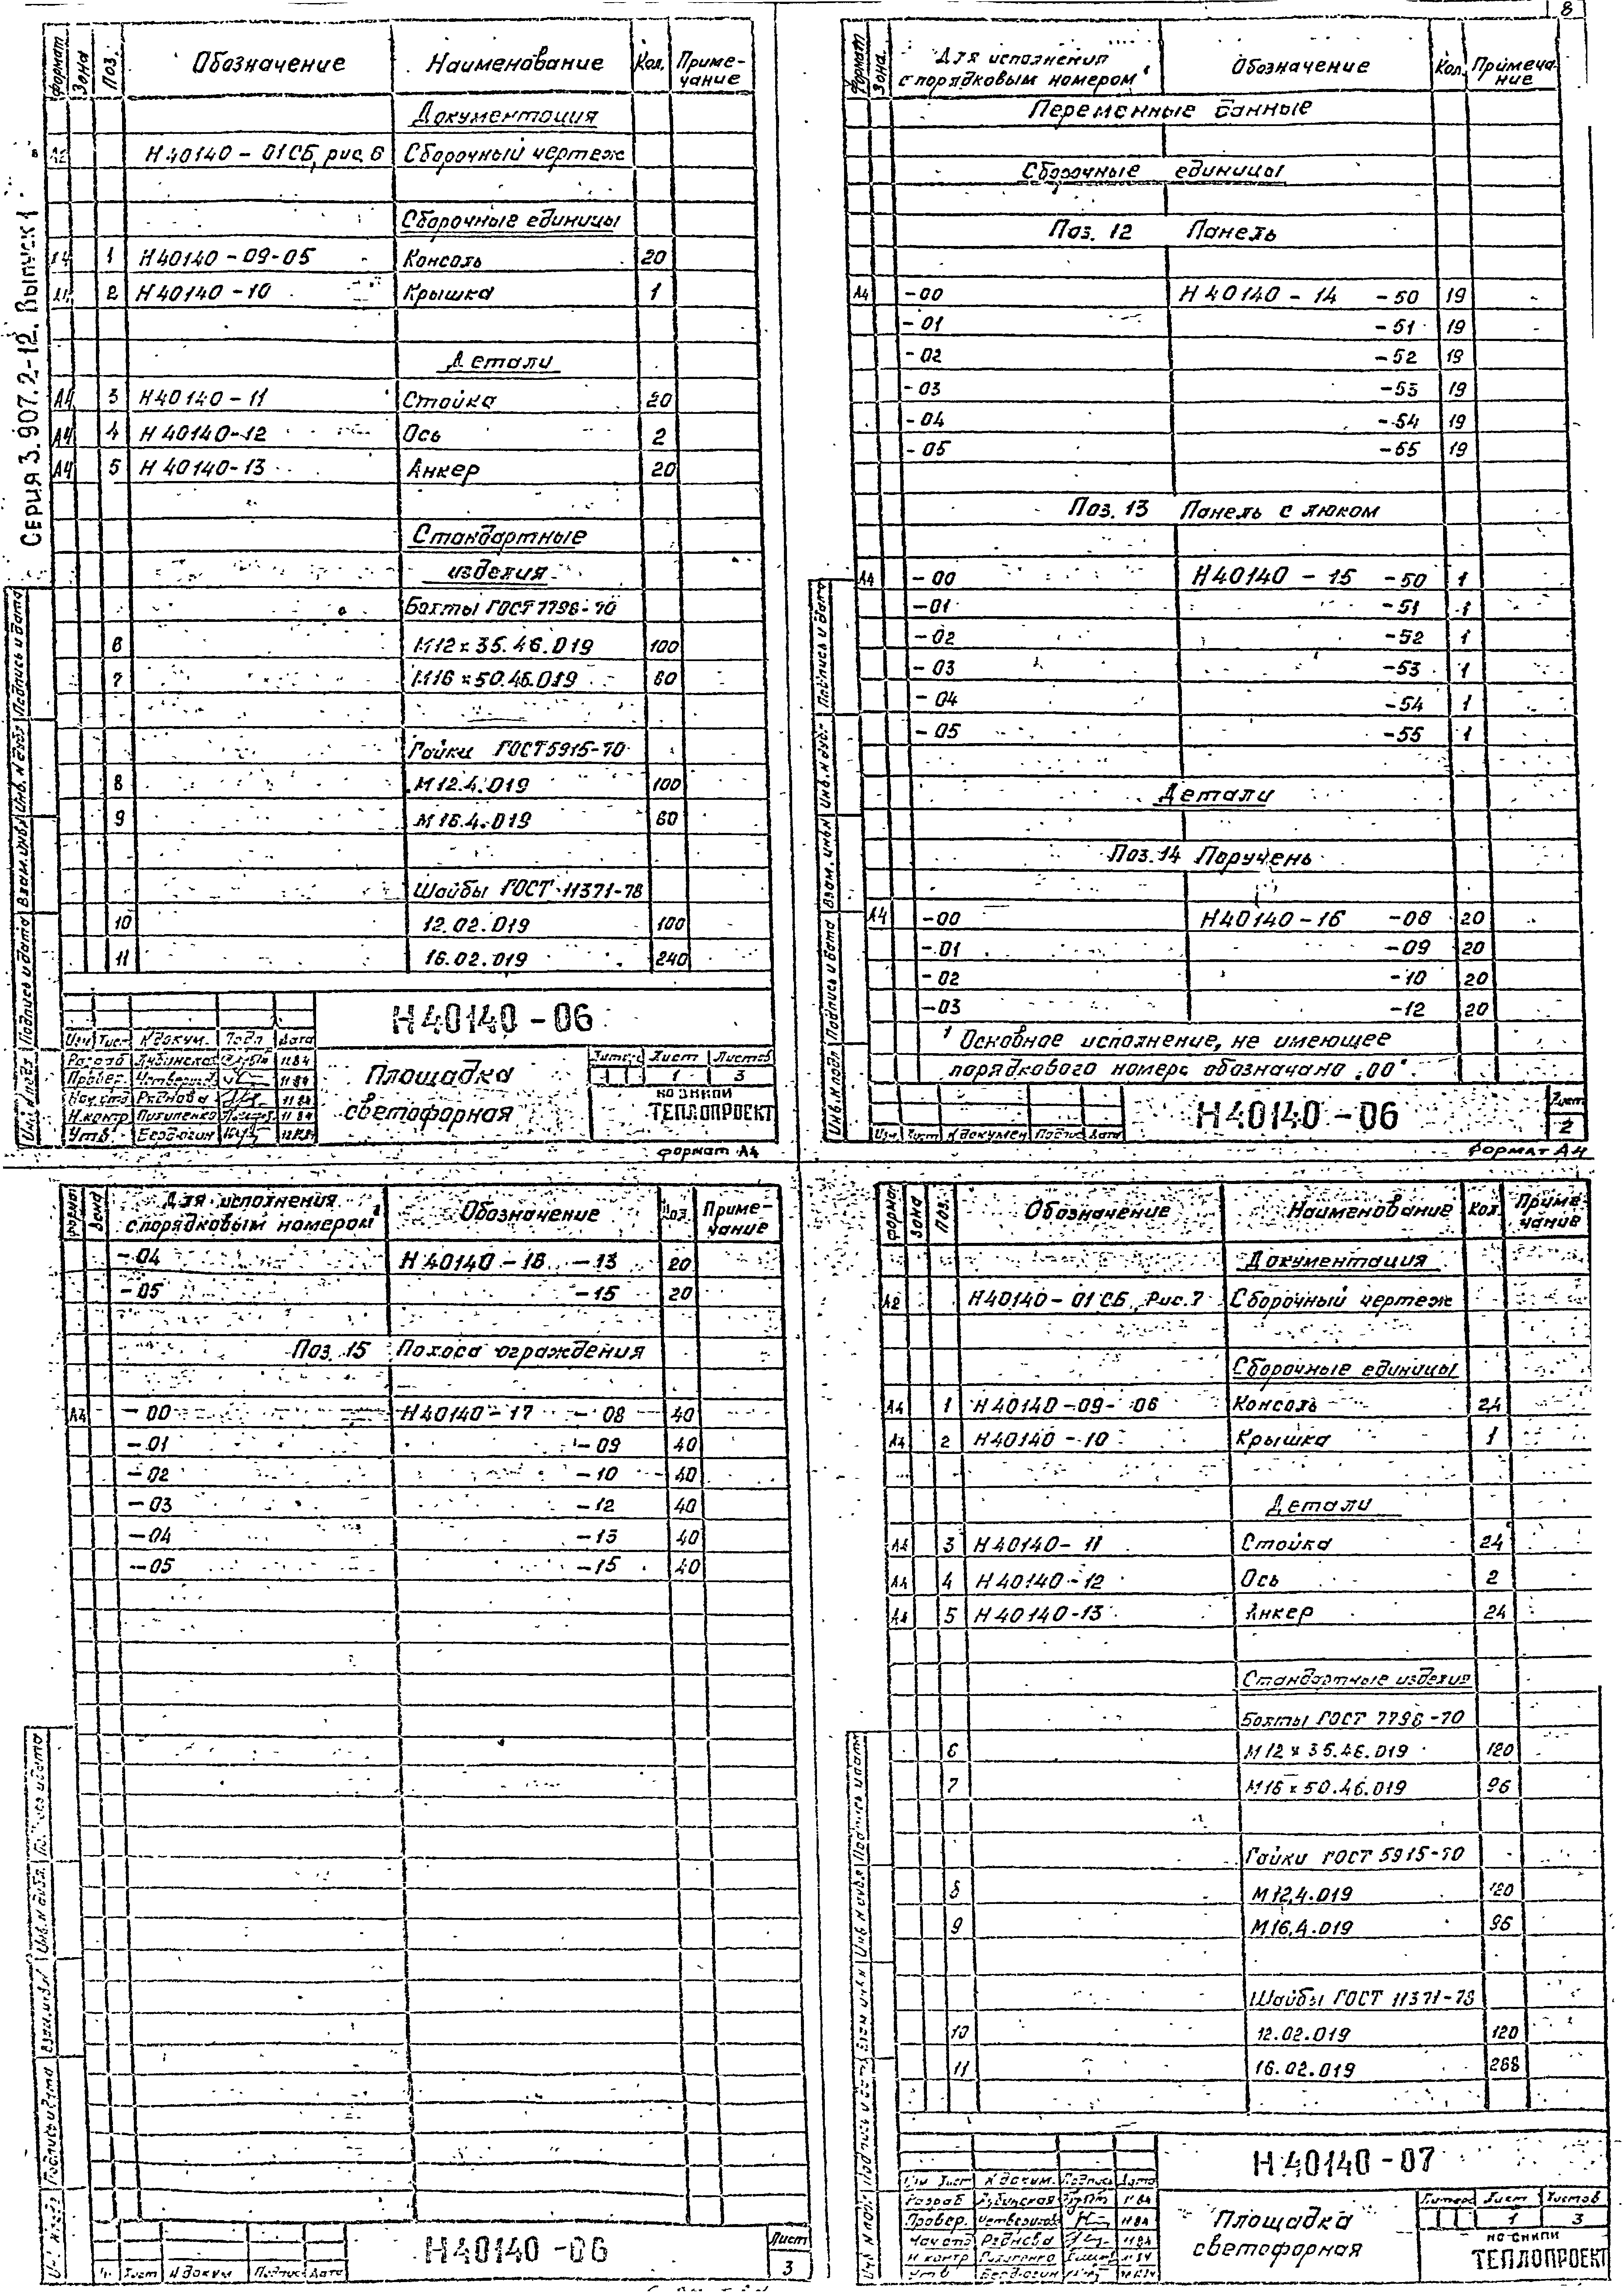 8
Серия 3.907.2-12. Выпуск 1
Формат Зона Поз. Обозначение Наименование Кол. Примечание
Документация
А2 Н40140-01СБ, рис. 6 Сборочный чертеж
Сборочные единицы
А4 1 Н40140-09-05 Консоль 20
2 Н40140-10 Крышка 1
Детали
А4 3 Н40140-11 Стойка 20
А4 4 Н40140-12 Ось 2
А4 5 Н40140-13 Анкер 20
Стандартные
изделия
Болты ГОСТ 7796-70
6 М12х35.46.019 100
7 М16х50.46.019 80
Гайки ГОСТ 5915-70
8 М12.4.019 100
9 М16.4.019 80
Шайбы ГОСТ 11371-78
10 12.02.019 100
11 16.02.019 240
Н40140-06
Изм Лист N докум. Подп Дата
Разраб Лубинская 11.84
Провер. 11.84
Нач.отд Руднова 11.84
Н.контр Пилипенко 11.84
Утв.
Площадка
светофорная
Литера Лист Листов
1 3
ТЕПЛОПРОЕКТ
Формат А4
Инв.N подл Подпись и дата Взам.инв.N Инв.N дубл Подпись и дата
Формат Зона. Для исполнения с порядковым номером¹ Обозначение Кол. Примечание
Переменные данные
Сборочные единицы
Поз. 12 Панель
А4 -00 Н40140-14 -50 19
-01 -51 19
-02 -52 19
-03 -53 19
-04 -54 19
-05 -55 19
Поз. 13 Панель с люком
А4 -00 Н40140-15 -50 1
-01 -51 1
-02 -52 1
-03 -53 1
-04 -54 1
-05 -55 1
Детали
Поз. 14 Поручень
А4 -00 Н40140-16 -08 20
-01 -09 20
-02 -10 20
-03 -12 20
¹ Основное исполнение, не имеющее
порядкового номера обозначано „00"
Н40140-06
Лист
2
Изм Лист N докумен Подпись Дата
Формат А4
Инв.N подл Подпись и дата Взам.инв.N Инв.N дубл. Подпись и дата
Формат Зона Для исполнения с порядковым номером¹ Обозначение Кол. Примечание
-04 Н40140-16 -13 20
-05 -15 20
Поз. 15 Полоса ограждения
А4 -00 Н40140-17 -08 40
-01 -09 40
-02 -10 40
-03 -12 40
-04 -13 40
-05 -15 40
Н40140-06
Лист
3
Лист N докум Подпись Дата
Формат Зона Поз. Обозначение Наименование Кол. Примечание
Документация
А2 Н40140-01СБ, Рис.7 Сборочный чертеж
Сборочные единицы
А4 1 Н40140-09-06 Консоль 24
А4 2 Н40140-10 Крышка 1
Детали
А4 3 Н40140-11 Стойка 24
А4 4 Н40140-12 Ось 2
А4 5 Н40140-13 Анкер 24
Стандартные изделия
Болты ГОСТ 7796-70
6 М12х35.46.019 120
7 М16х50.46.019 96
Гайки ГОСТ 5915-70
8 М12.4.019 120
9 М16.4.019 96
Шайбы ГОСТ 11371-78
10 12.02.019 120
11 16.02.019 288
Н40140-07
Изм Лист N докум. Подпись Дата
Разраб Лубинская 11.84
Провер. 11.84
Нач отд Руднова 11.84
Н контр Пилипенко 11.84
Утв
Площадка
светофорная
Литера Лист Листов
1 3
ТЕПЛОПРОЕКТ